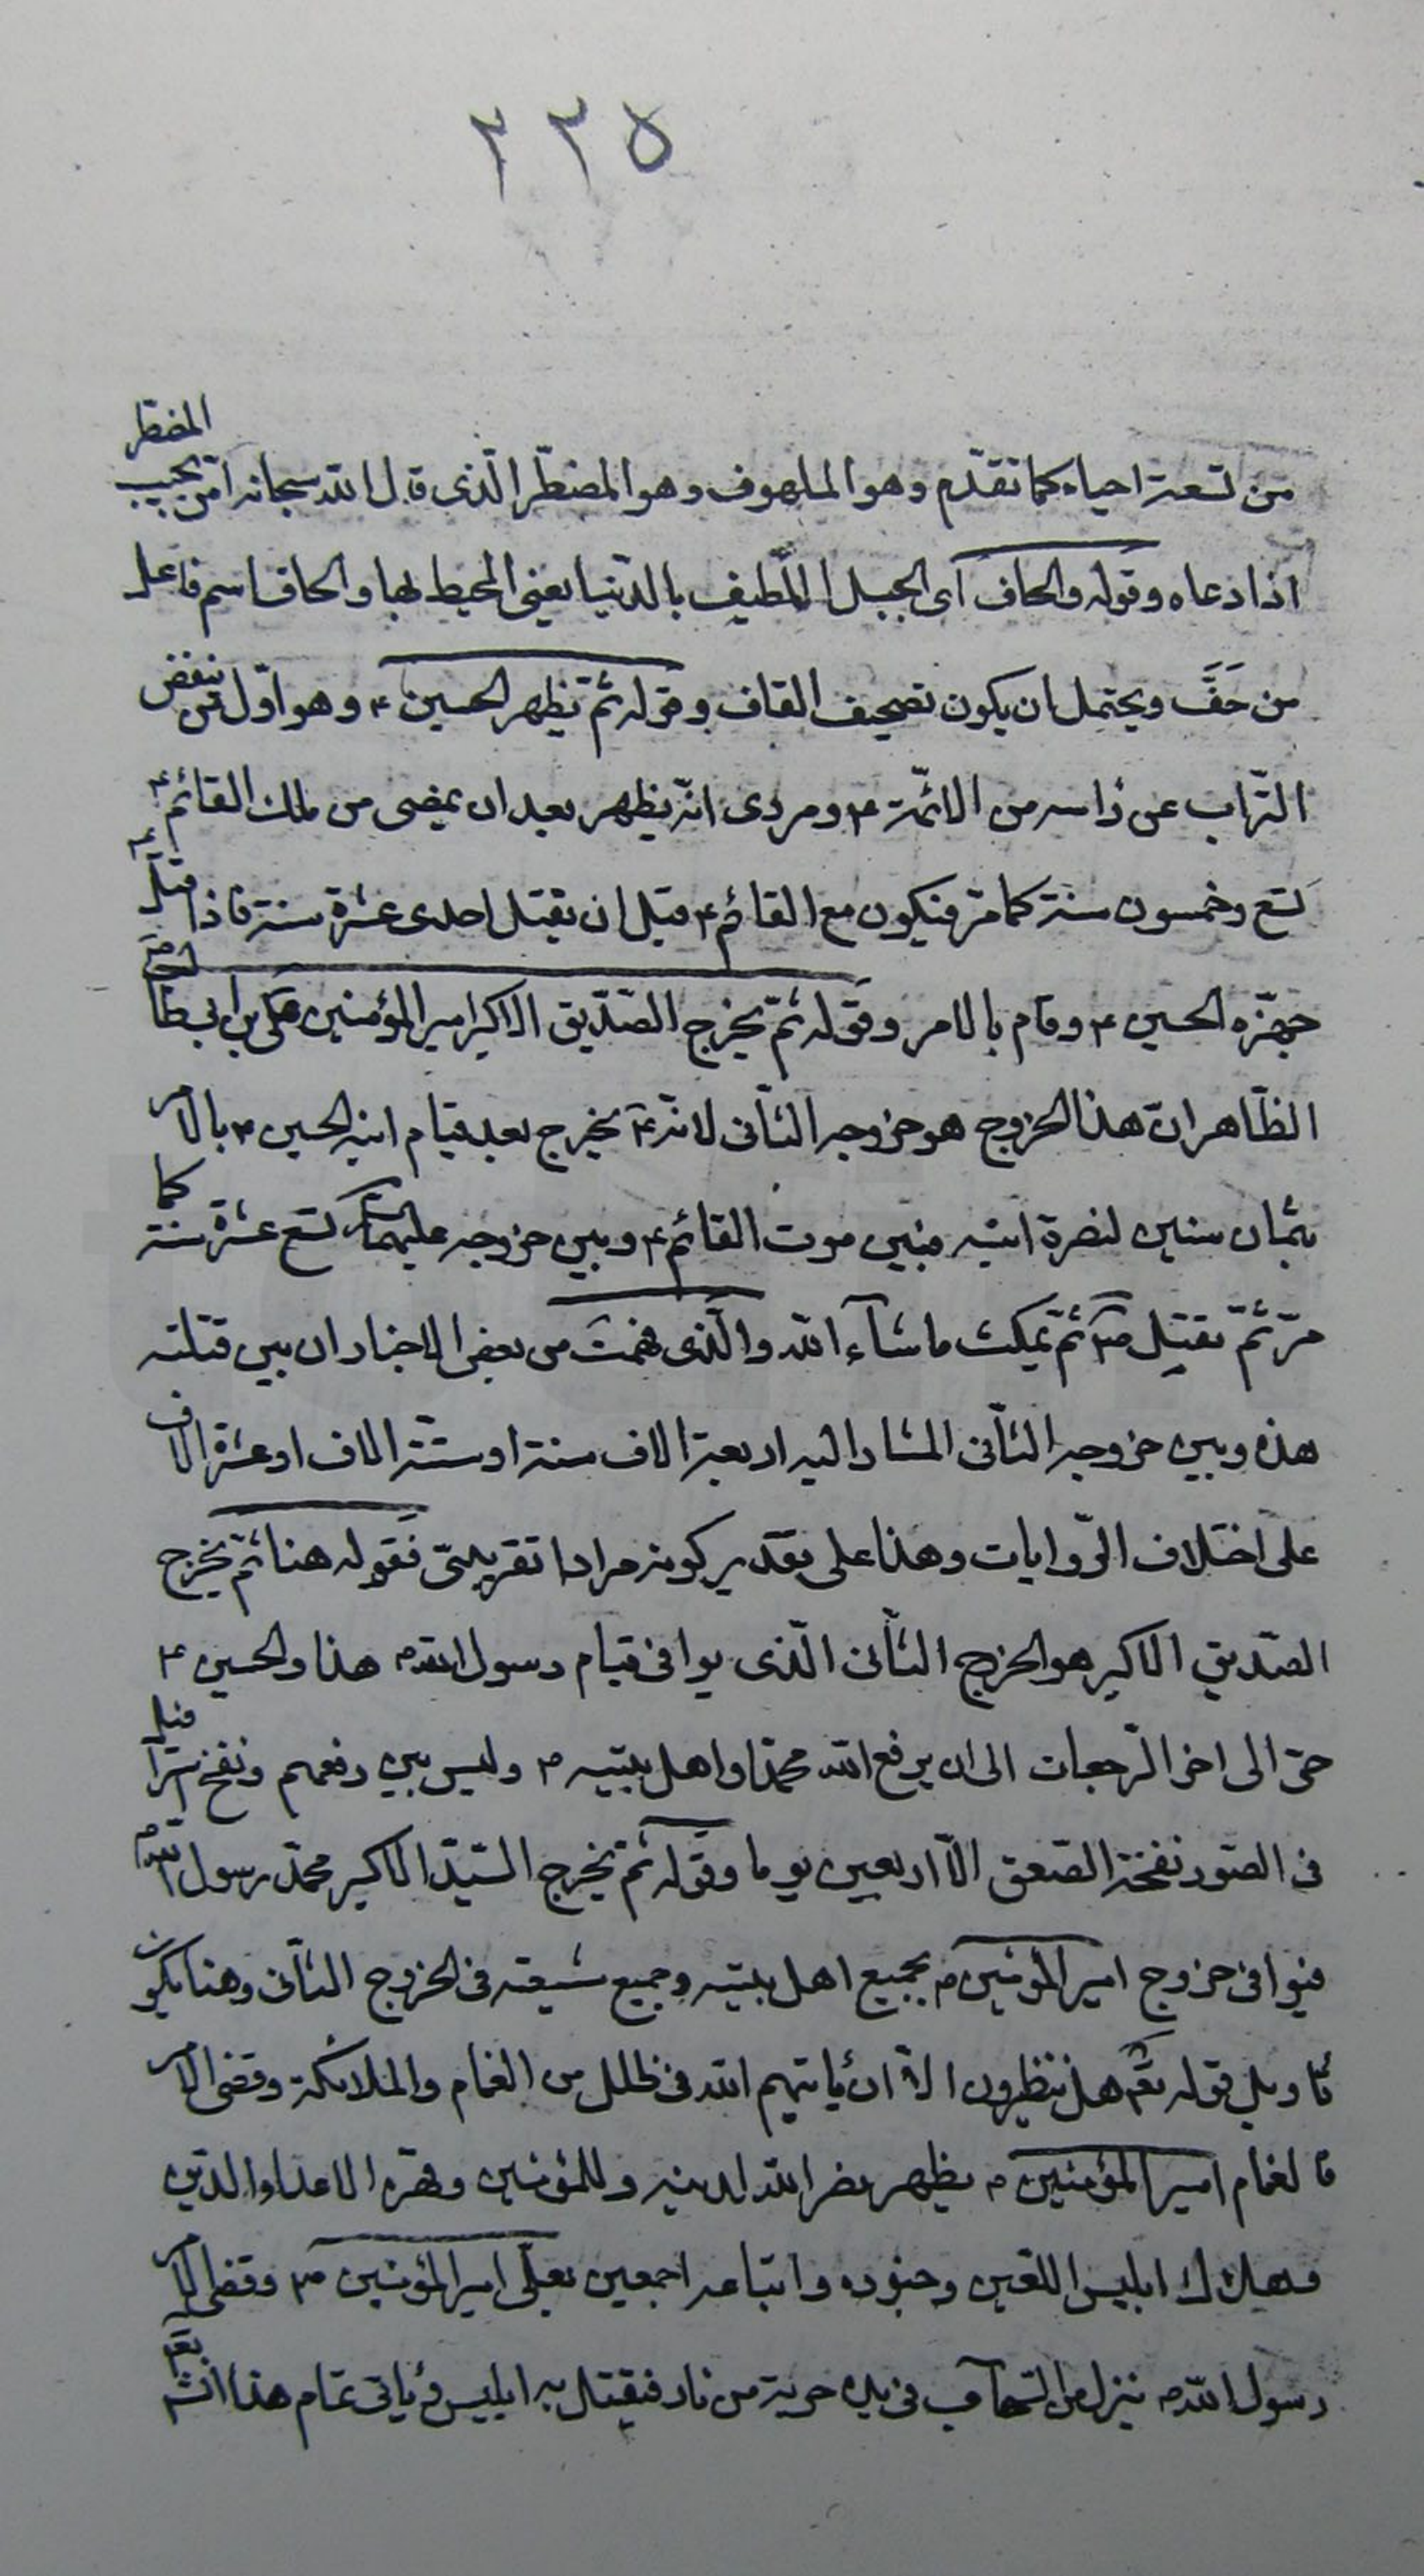 ٢٢٥
من تسعة احياء كما تقدّم وهو الملهوف وهو المضطرّ الّذى قال الله سبحانه امّن يجيب المضطر
اذا دعاه وقوله والحاف اى الجبل المطيف بالدّنيا يعنى المحيط بها والحاف اسم فاعل
من حَفَّ ويحتمل ان يكون تصحيف القاف وقوله ثمّ يظهر الحسين ع وهو اوّل من ينفض
التّراب عن راسه من الائمّة ع وروى انّه يظهر بعد ان يمضى من ملك القائم ع
تسع وخمسون سنة كما مرّ فيكون مع القائم ع قبل ان يقتل احدى عشرة سنة فاذا قتل ع
جهّزه الحسين ع وقام بالامر وقوله ثمّ يخرج الصّدّيق الاكبر امير المؤمنين على بن ابى طالب
الظّاهر انّ هذا الخروج هو خروجه الثّانى لانّه ع يخرج بعد قيام ابنه الحسين ع بالامر
بثمان سنين لنصرة ابنه فبين موت القائم ع وبين خروجه عليهما تسع عشرة سنة كما
مرّ ثمّ يقتل ص ثمّ يمكث ما شآء الله والّذى فهمت من بعض الاخبار ان بين قتلته
هذه وبين خروجه الثّانى المشار اليه اربعة الاف سنة او ستّة الاف او عشرة الاف
على اختلاف الرّوايات وهذا على تقدير كونه مرادا تقريبىّ فقوله هنا ثمّ يخرج
الصّديق الاكبر هو الخروج الثّانى الّذى يوافى قيام رسول الله ص هذا والحسين ع
حىّ الى اخر الرّجعات الى ان يرفع الله محمّدا واهل بيته ص وليس بين رفعهم ونفخ اسرافيل
فى الصّور نفخة الصّعق الّا اربعين يوما وقوله ثمّ يخرج السّيّد الاكبر محمّد رسول الله ص
فيوافى خروج امير المؤمنين ص بجميع اهل بيته وجميع شيعته فى الخروج الثّانى وهنا يكون
تأويل قوله تعم هل ينظرون الّا ان يأتيهم الله فى ظلل من الغمام والملائكة وقضى الامر
فالغمام امير المؤمنين ص يظهر نصر الله لدينه وللمؤمنين وقهره الاعداء الدّين
وهلاك ابليس اللعين وجنوده واتباعه اجمعين بعلى امير المؤمنين ص وقضى الامر
رسول الله ص ينزل من السّحاب فى يده حربة من نار فيقتل به ابليس ويأتى تمام هذا انشآ الله تعم